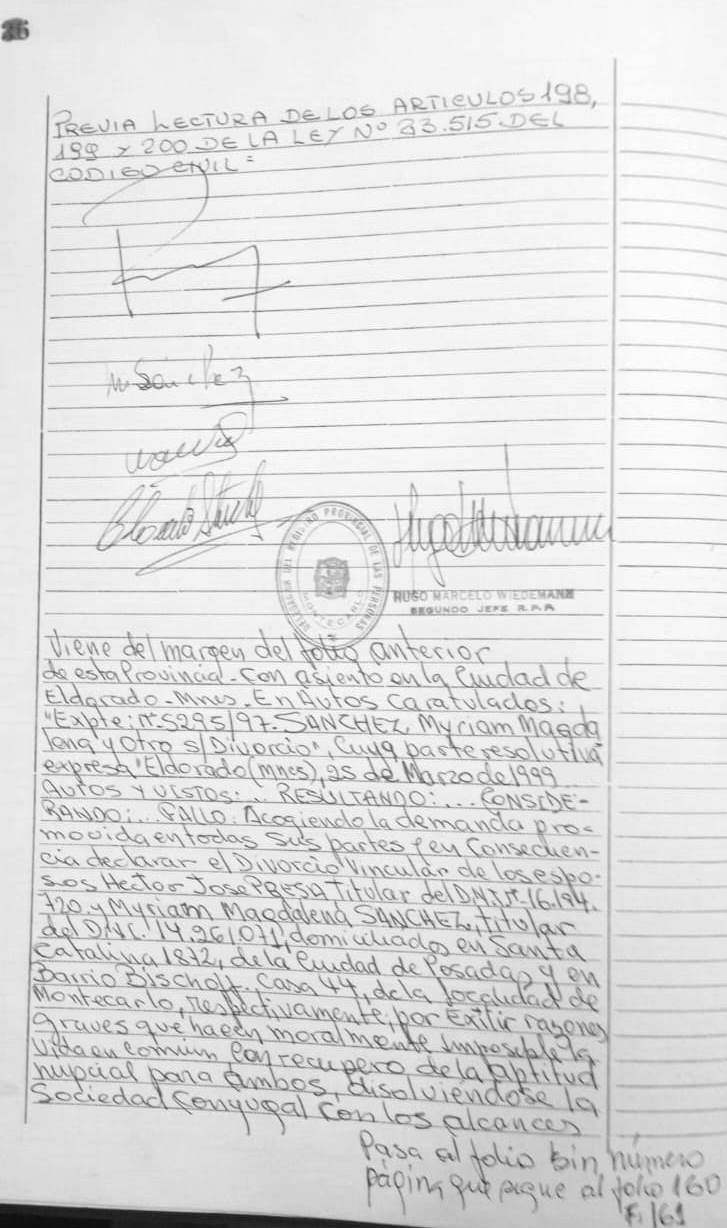 26
PREVIA LECTURA DE LOS ARTICULOS 198,
199 Y 200 DE LA LEY Nº 23.515 DEL
CODIGO CIVIL =
M Sánchez
DELEGACION DEL REGISTRO PROVINCIAL DE LAS PERSONAS
MONTECARLO
HUGO MARCELO WIEDEMANN
SEGUNDO JEFE R.P.P.
Viene del margen del folio anterior
de esta Provincia - con asiento en la Ciudad de
Eldorado - Mnes. En Autos Caratulados:
"Expte: Nº 5295/97. SANCHEZ, Myriam Magda
lena y Otro s/ Divorcio", Cuya parte resolutiva
expresa "Eldorado (mnes), 25 de Marzo de 1999
AUTOS Y VISTOS:... RESULTANDO:... CONSIDE-
RANDO:... FALLO: Acogiendo la demanda pro-
movida en todas sus partes y en Consecuen-
cia declarar el Divorcio Vincular de los espo-
sos Hector Jose PRESA, titular del DNI Nº 16.194.
720. y Myriam Magdalena SANCHEZ, titular
del DNI. 14.261.071, domiciliados en Santa
Catalina 1872, de la Ciudad de Posadas y en
Barrio Bischoff. Casa 44, de la localidad de
Montecarlo, respectivamente, por Existir razones
graves que hacen moralmente imposible la
vida en común con recupero de la aptitud
nupcial para ambos, disolviéndose la
Sociedad Conyugal con los alcances
Pasa al folio sin número
página que sigue al folio 160
F. 161